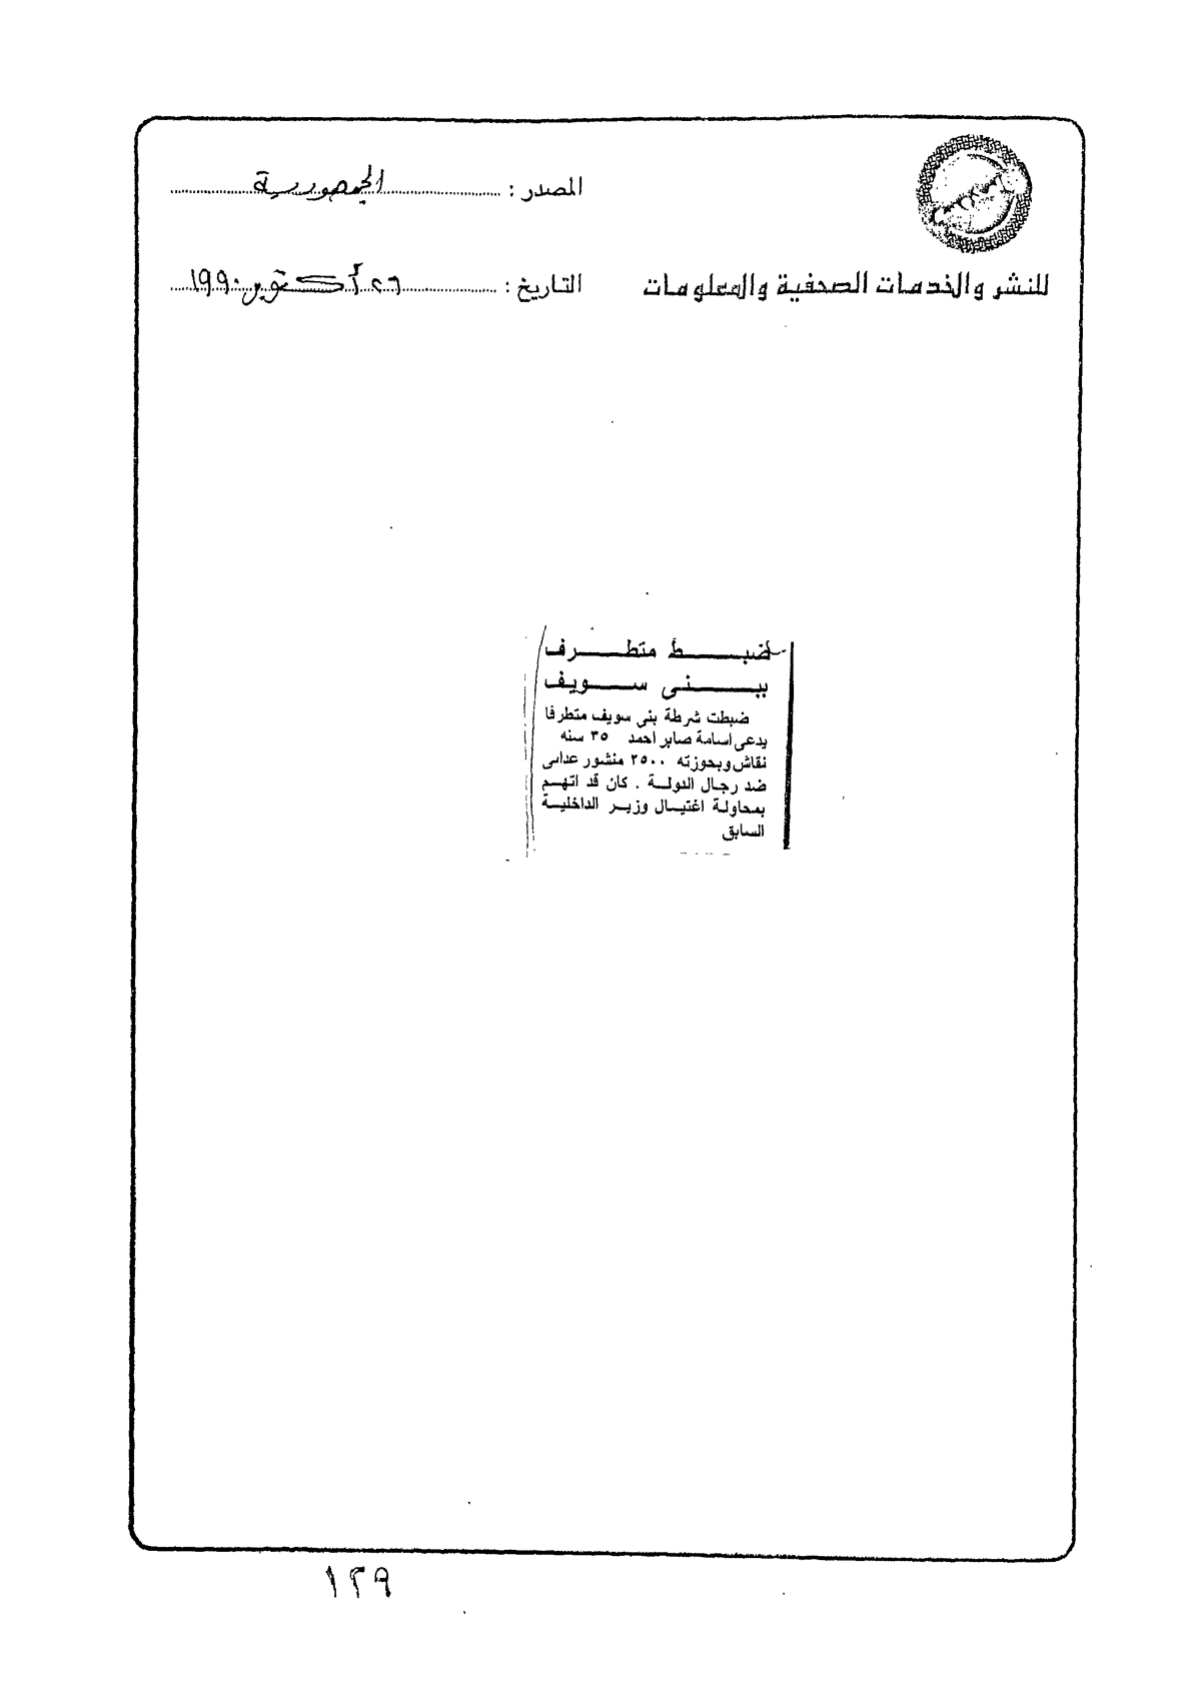 المصدر : الجمهورية
للنشر والخدمات الصحفية والمعلومات
التاريخ : ٢٦ أكتوبر ١٩٩٠
ضبط متطرف
ببنى سويف
ضبطت شرطة بنى سويف متطرفا
يدعى اسامة صابر احمد ٣٥ سنه
نقاش وبحوزته ٢٥٠٠ منشور عدائى
ضد رجال الدولة . كان قد اتهم
بمحاولة اغتيال وزير الداخلية
السابق
١٢٩